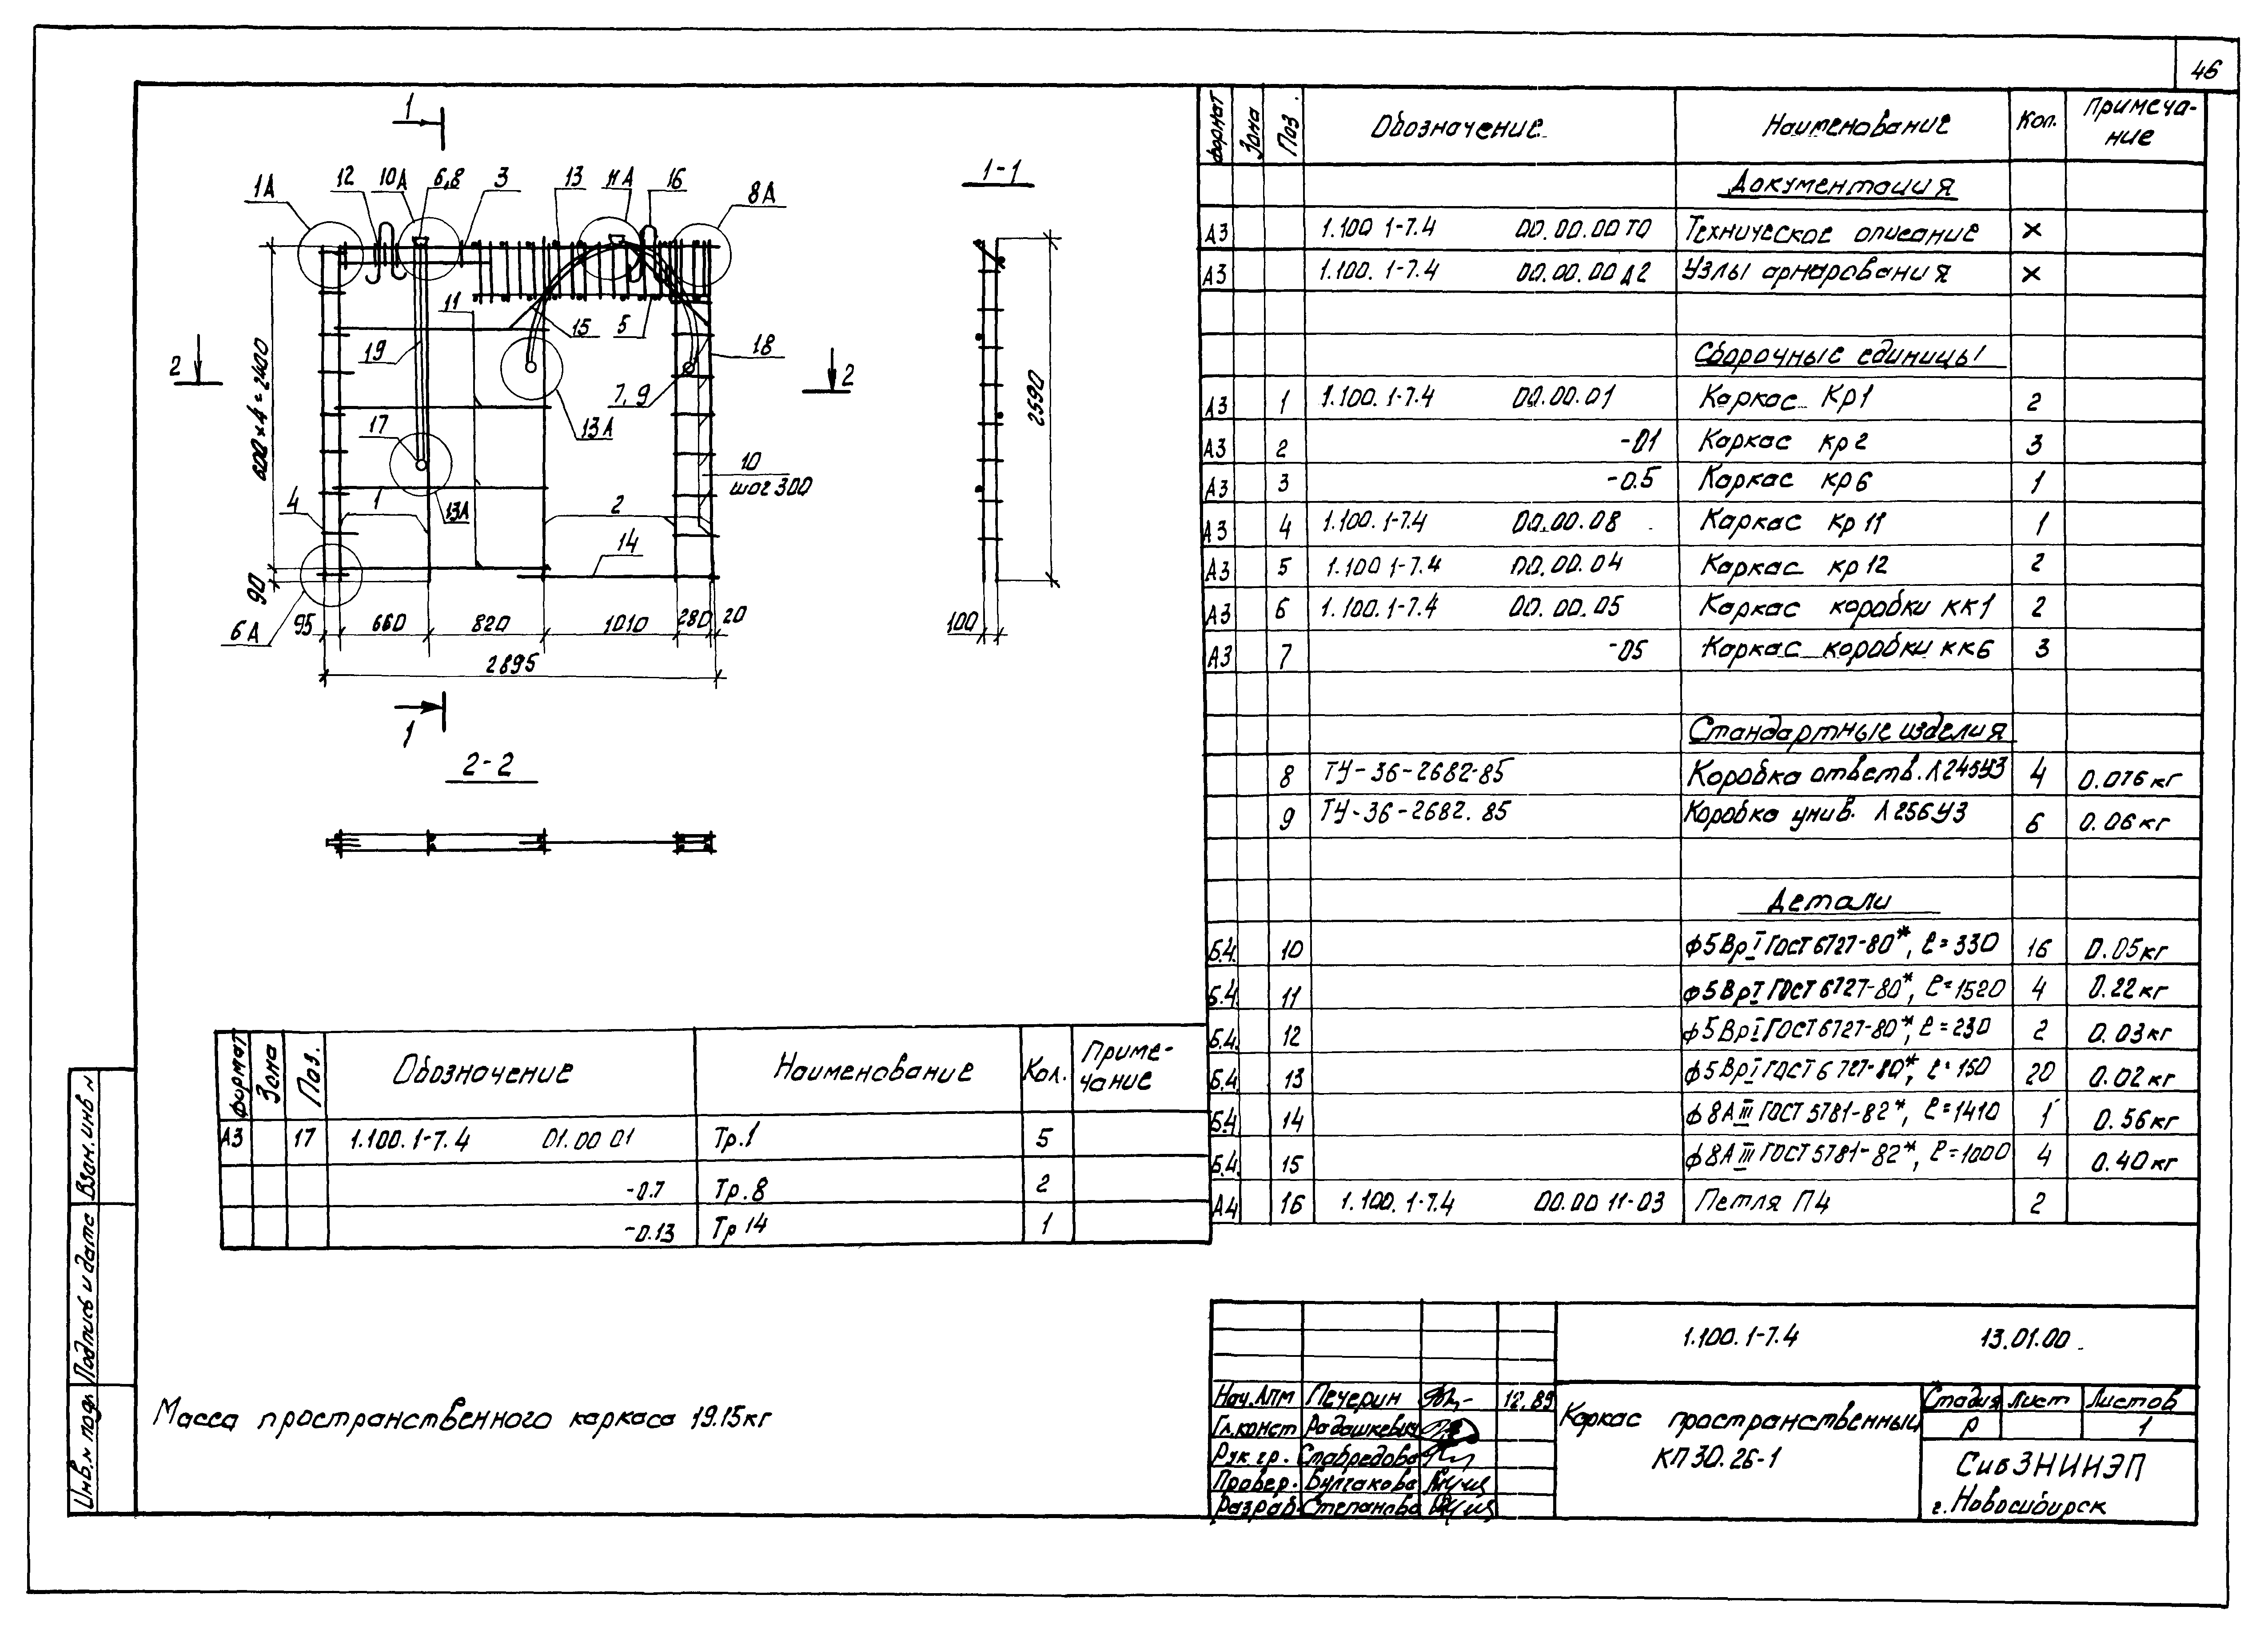 46
1
1А
12
10А
6,8
3
13
11А
16
8А
1-1
11
15
5
18
19
2
2
7,9
600х4=2400
2590
17
13А
10
шаг 300
4
1
13А
2
14
90
6А
95
660
820
1010
280
20
2895
100
1
2-2
формат Зона Поз. Обозначение Наименование Кол. Примеча-
ние
Документация
А3 1.100 1-7.4 00.00.00 ТО Техническое описание х
А3 1.100. 1-7.4 00.00.00 Д2 Узлы армирования х
Сборочные единицы
А3 1 1.100. 1-7.4 00.00.01 Каркас Кр1 2
А3 2 -01 Каркас кр2 3
А3 3 -0.5 Каркас кр6 1
А3 4 1.100. 1-7.4 00.00.08 Каркас кр11 1
А3 5 1.100 1-7.4 00.00.04 Каркас кр12 2
А3 6 1.100.1-7.4 00.00.05 Каркас коробки кк1 2
А3 7 -05 Каркас коробки кк6 3
Стандартные изделия
8 ТУ-36-2682-85 Коробка ответв. Л245У3 4 0.076кг
9 ТУ-36-2682.85 Коробка унив. Л256У3 6 0.06кг
Детали
Б.4. 10 ф5ВрI ГОСТ 6727-80*, ℓ=330 16 0.05кг
Б.4. 11 ф5ВрI ГОСТ 6727-80*, ℓ=1520 4 0.22кг
Б.4. 12 ф5ВрI ГОСТ 6727-80*, ℓ=230 2 0.03кг
Б.4. 13 ф5ВрI ГОСТ 6727-80*, ℓ=150 20 0.02кг
Б.4 14 ф8АIII ГОСТ 5781-82*, ℓ=1410 1 0.56кг
Б.4. 15 ф8АIII ГОСТ 5781-82*, ℓ=1000 4 0.40кг
А4 16 1.100.1-7.4 00.00 11-03 Петля П4 2
формат Зона Поз. Обозначение Наименование Кол. Приме-
чание
А3 17 1.100.1-7.4 01.00 01 Тр.1 5
-0.7 Тр.8 2
-0.13 Тр14 1
Масса пространственного каркаса 19.15кг
Инв.N подл. Подпись и дата Взам.инв N
1.100.1-7.4 13.01.00
Нач.АПМ Печерин 12.89
Гл.конст Радашкевич
Рук.гр. Ставредова
Провер. Булгакова
Разраб. Степанова
Каркас пространственный
КП30.26-1
Стадия Лист Листов
Р 1
СибЗНИИЭП
г.Новосибирск